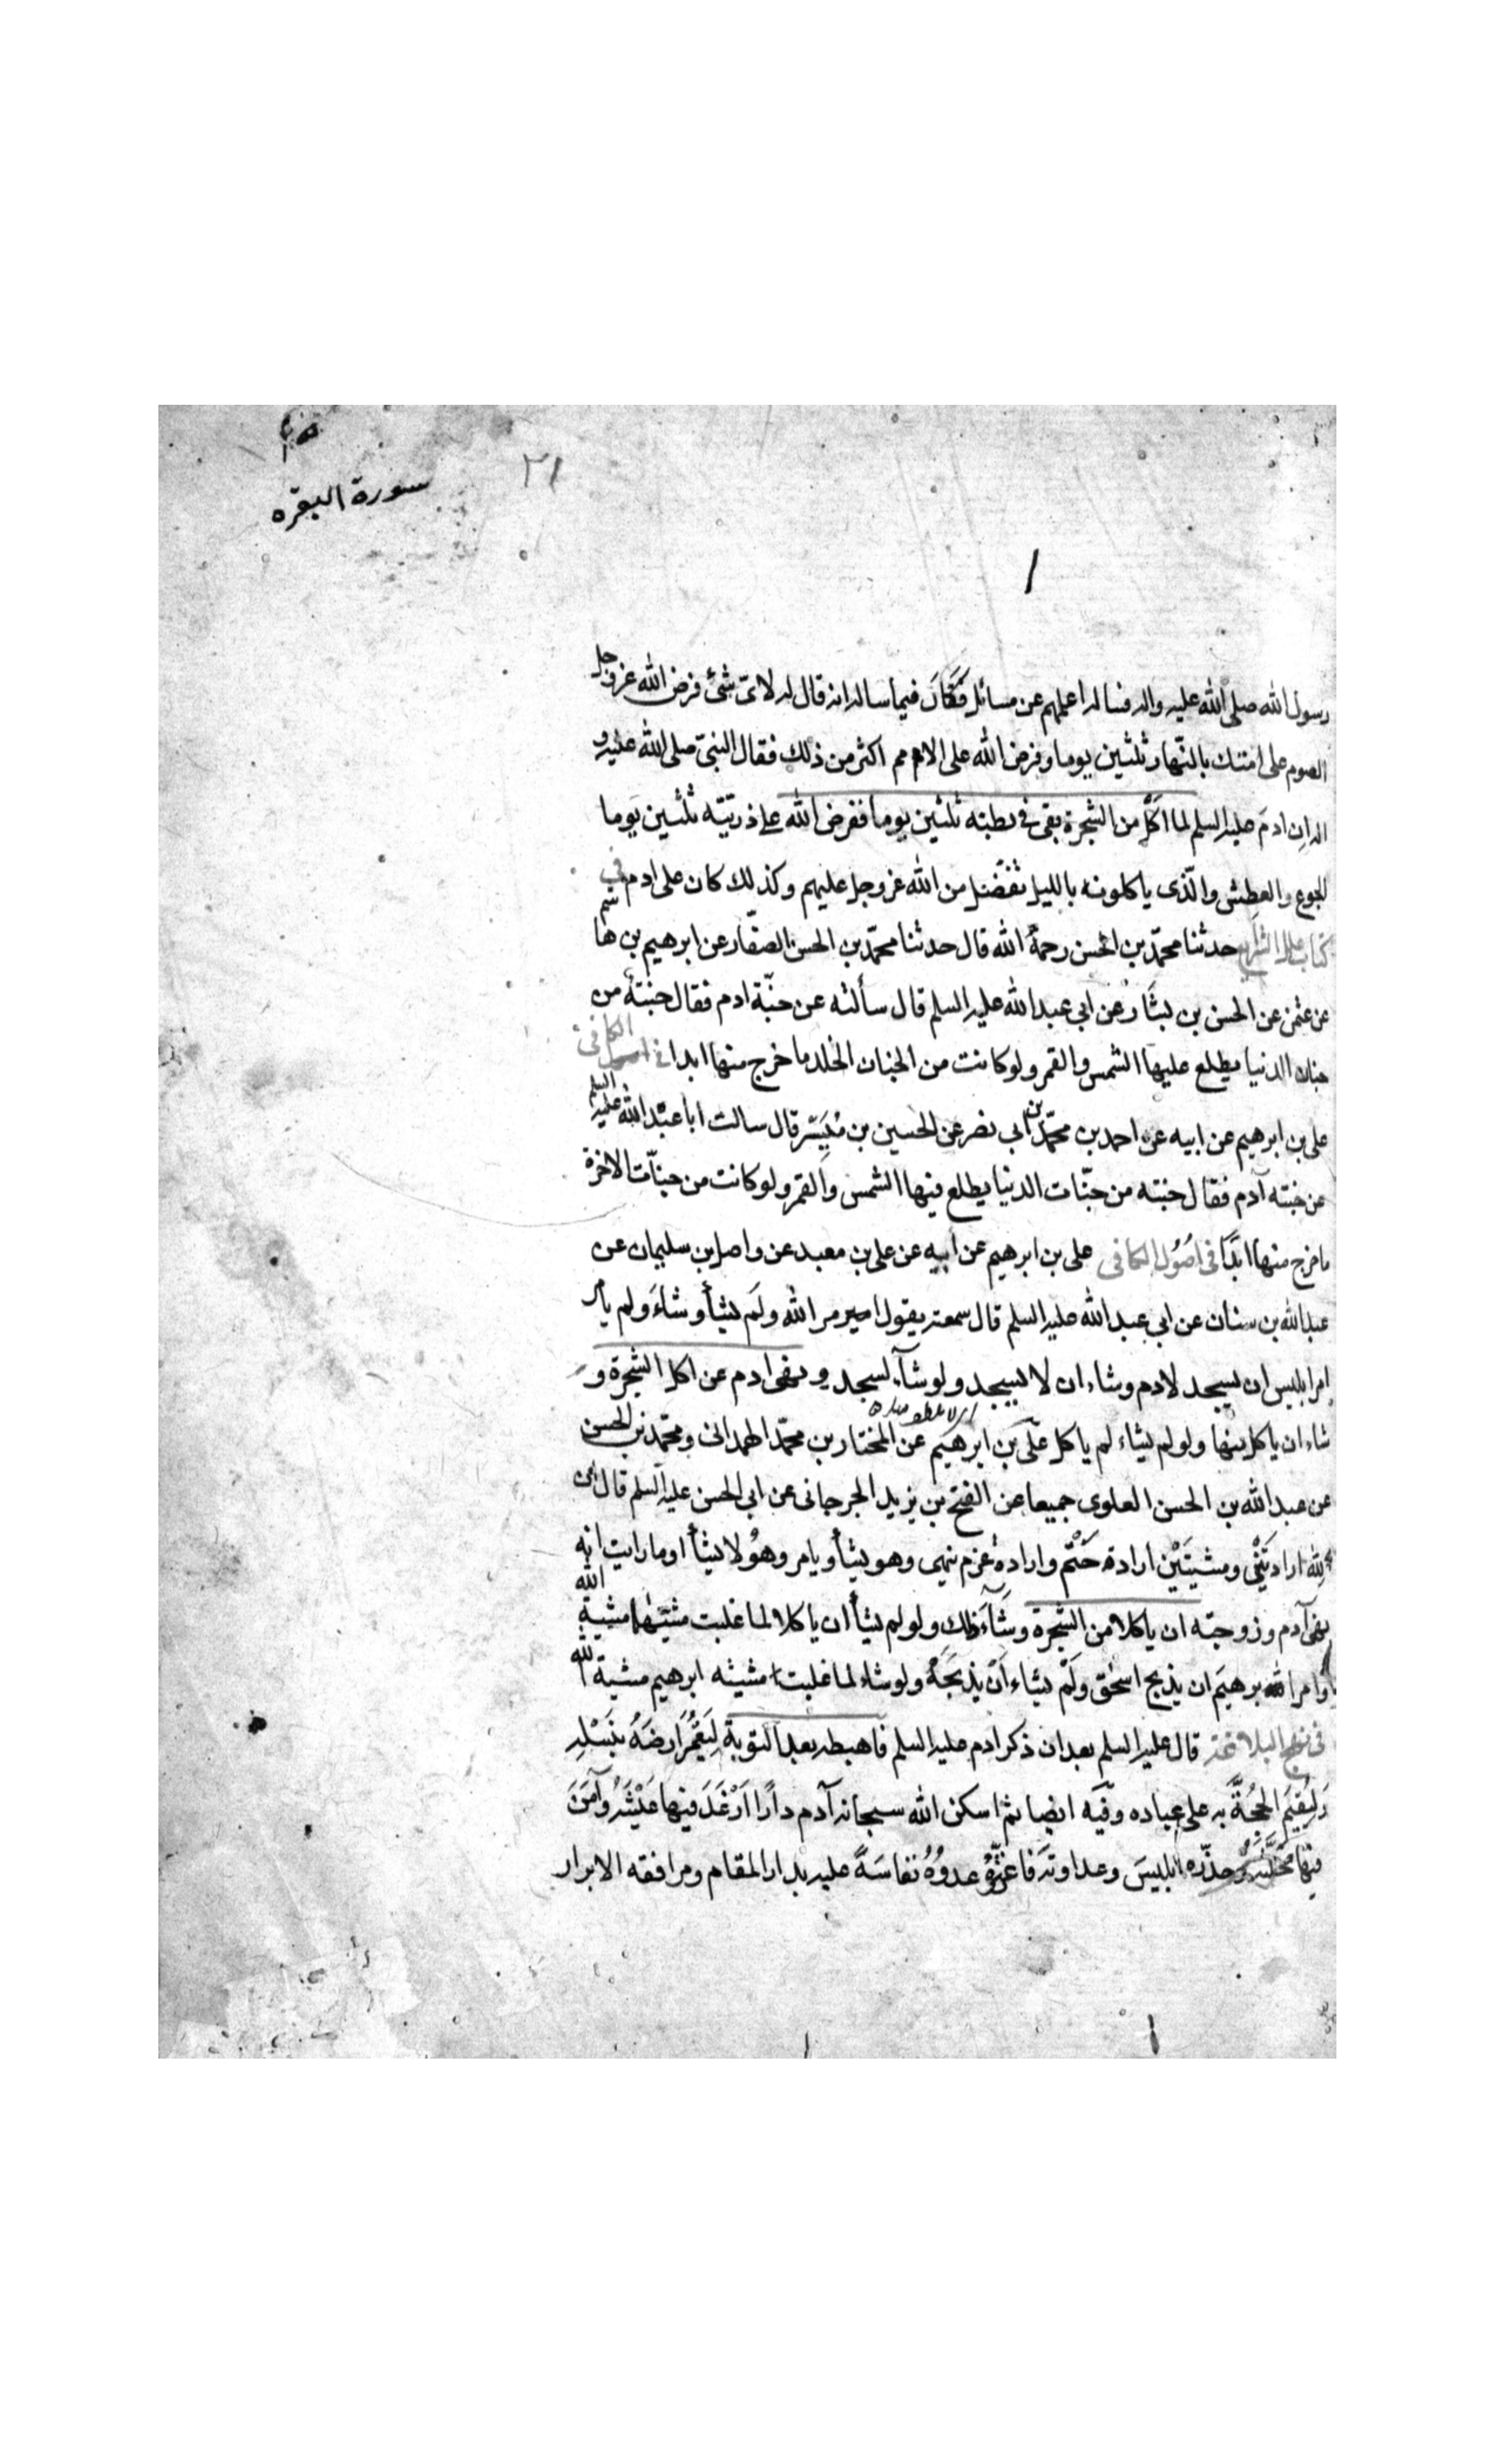 سورة البقره
٣١
رسول الله صلى الله عليه واله فسأله اعلمهم عن مسائل فكان فيما ساله انه قال له لاى شئ فرض الله عز وجل
الصوم على امتك بالنهار ثلثين يوما وفرض الله على الامم اكثر من ذلك فقال النبى صلى الله عليه و
اله ان ادم عليه السلم لما اكل من الشجرة بقى فى بطنه ثلثين يوما ففرض الله على ذريته ثلثين يوما
الجوع والعطش والذى ياكلونه بالليل تفضل من الله عز وجل عليهم وكذلك كان على ادم فى
كتاب علل الشرايع حدثنا محمد بن الحسن رحمه الله قال حدثنا محمد بن الحسن الصفار عن ابرهيم بن هاشم
عن عثمن عن الحسن بن بشار عن ابى عبد الله عليه السلم قال سألته عن جنة ادم فقال جنة من
جنان الدنيا يطلع عليها الشمس والقمر ولو كانت من الجنان الخلد ما خرج منها ابدا فى اصول الكافى
على بن ابرهيم عن ابيه عن احمد بن محمد بن ابى نصر عن الحسين بن ميسر قال سالت ابا عبد الله عليه السلم
عن جنته آدم فقال جنته من جنات الدنيا يطلع فيها الشمس والقمر ولو كانت من جنات الاخرة
ما خرج منها ابدا فى اصول الكافى على بن ابرهيم عن ابيه عن على بن معبد عن واصل بن سليمان عن
عبد الله بن سنان عن ابى عبد الله عليه السلم قال سمعته يقول امر الله ولم يشأ وشاء ولم يأمر
امر ابليس ان يسجد لادم وشاء ان لا يسجد ولو شاء لسجد ونهى ادم عن اكل الشجرة و
شاء ان ياكل منها ولو لم يشاء لم ياكل على بن ابرهيم عن المختار بن محمد الهمدانى ومحمد بن الحسن
عن عبد الله بن الحسن العلوى جميعا عن الفتح بن يزيد الجرجانى عن ابى الحسن عليه السلم قال ان
لله ارادتين ومشيتين ارادة حتم وارادة عزم ينهى وهو يشأ ويامر وهو لا يشأ اوما رايت انه
نهى آدم وزوجته ان ياكلا من الشجرة وشاء ذلك ولو لم يشأ ان ياكلا لما غلبت مشيتهما مشية الله
وامر ابرهيم ان يذبح اسحق ولم يشاء ان يذبحه ولو شاء لما غلبت مشيته ابرهيم مشية الله
فى نهج البلاغة قال عليه السلم بعد ان ذكر ادم عليه السلم فاهبطه بعد التوبة ليعمر ارضه بنسله
وليقيم الحجة به على عباده وفيه ايضا ثم اسكن الله سبحانه آدم دارا ارغد فيها عيشه وآمن
فيها محلته وحذره ابليس وعداوته فاغتره عدوه نفاسة عليه بدار المقام ومرافقه الابرار